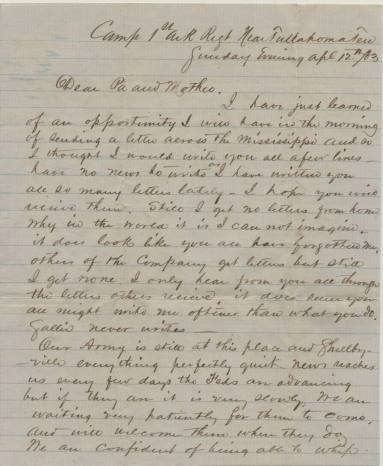 Camp 1st Ark Regt Near Tullahoma Ten
Sunday Evning Apl 12th /63
Dear Pa and Mother.
I have just learned
of an oppertinity I will have in the morning
of sending a letter across the Mississippi and so
I thought I would write you all a few lines -
have no news to write and I have written you
all so many letters lately - I hope you will
receive them. Still I get no letters from home
why in the world it is I can not imagine.
it does look like you all have forgotten me.
others of the Company get letters but still
I get none. I only hear from you all through
the letters others receive. it does seem you
all might write me oftener than what you do.
Gallie never writes -
Our Army is still at this place and Shelby-
ville everything perfectly quiet. news reaches
us every few days the Feds are advancing
but if they are it is very slowly. We are
waiting very patiently for them to come.
and will welcome them when they do.
We are confident of being able to whip